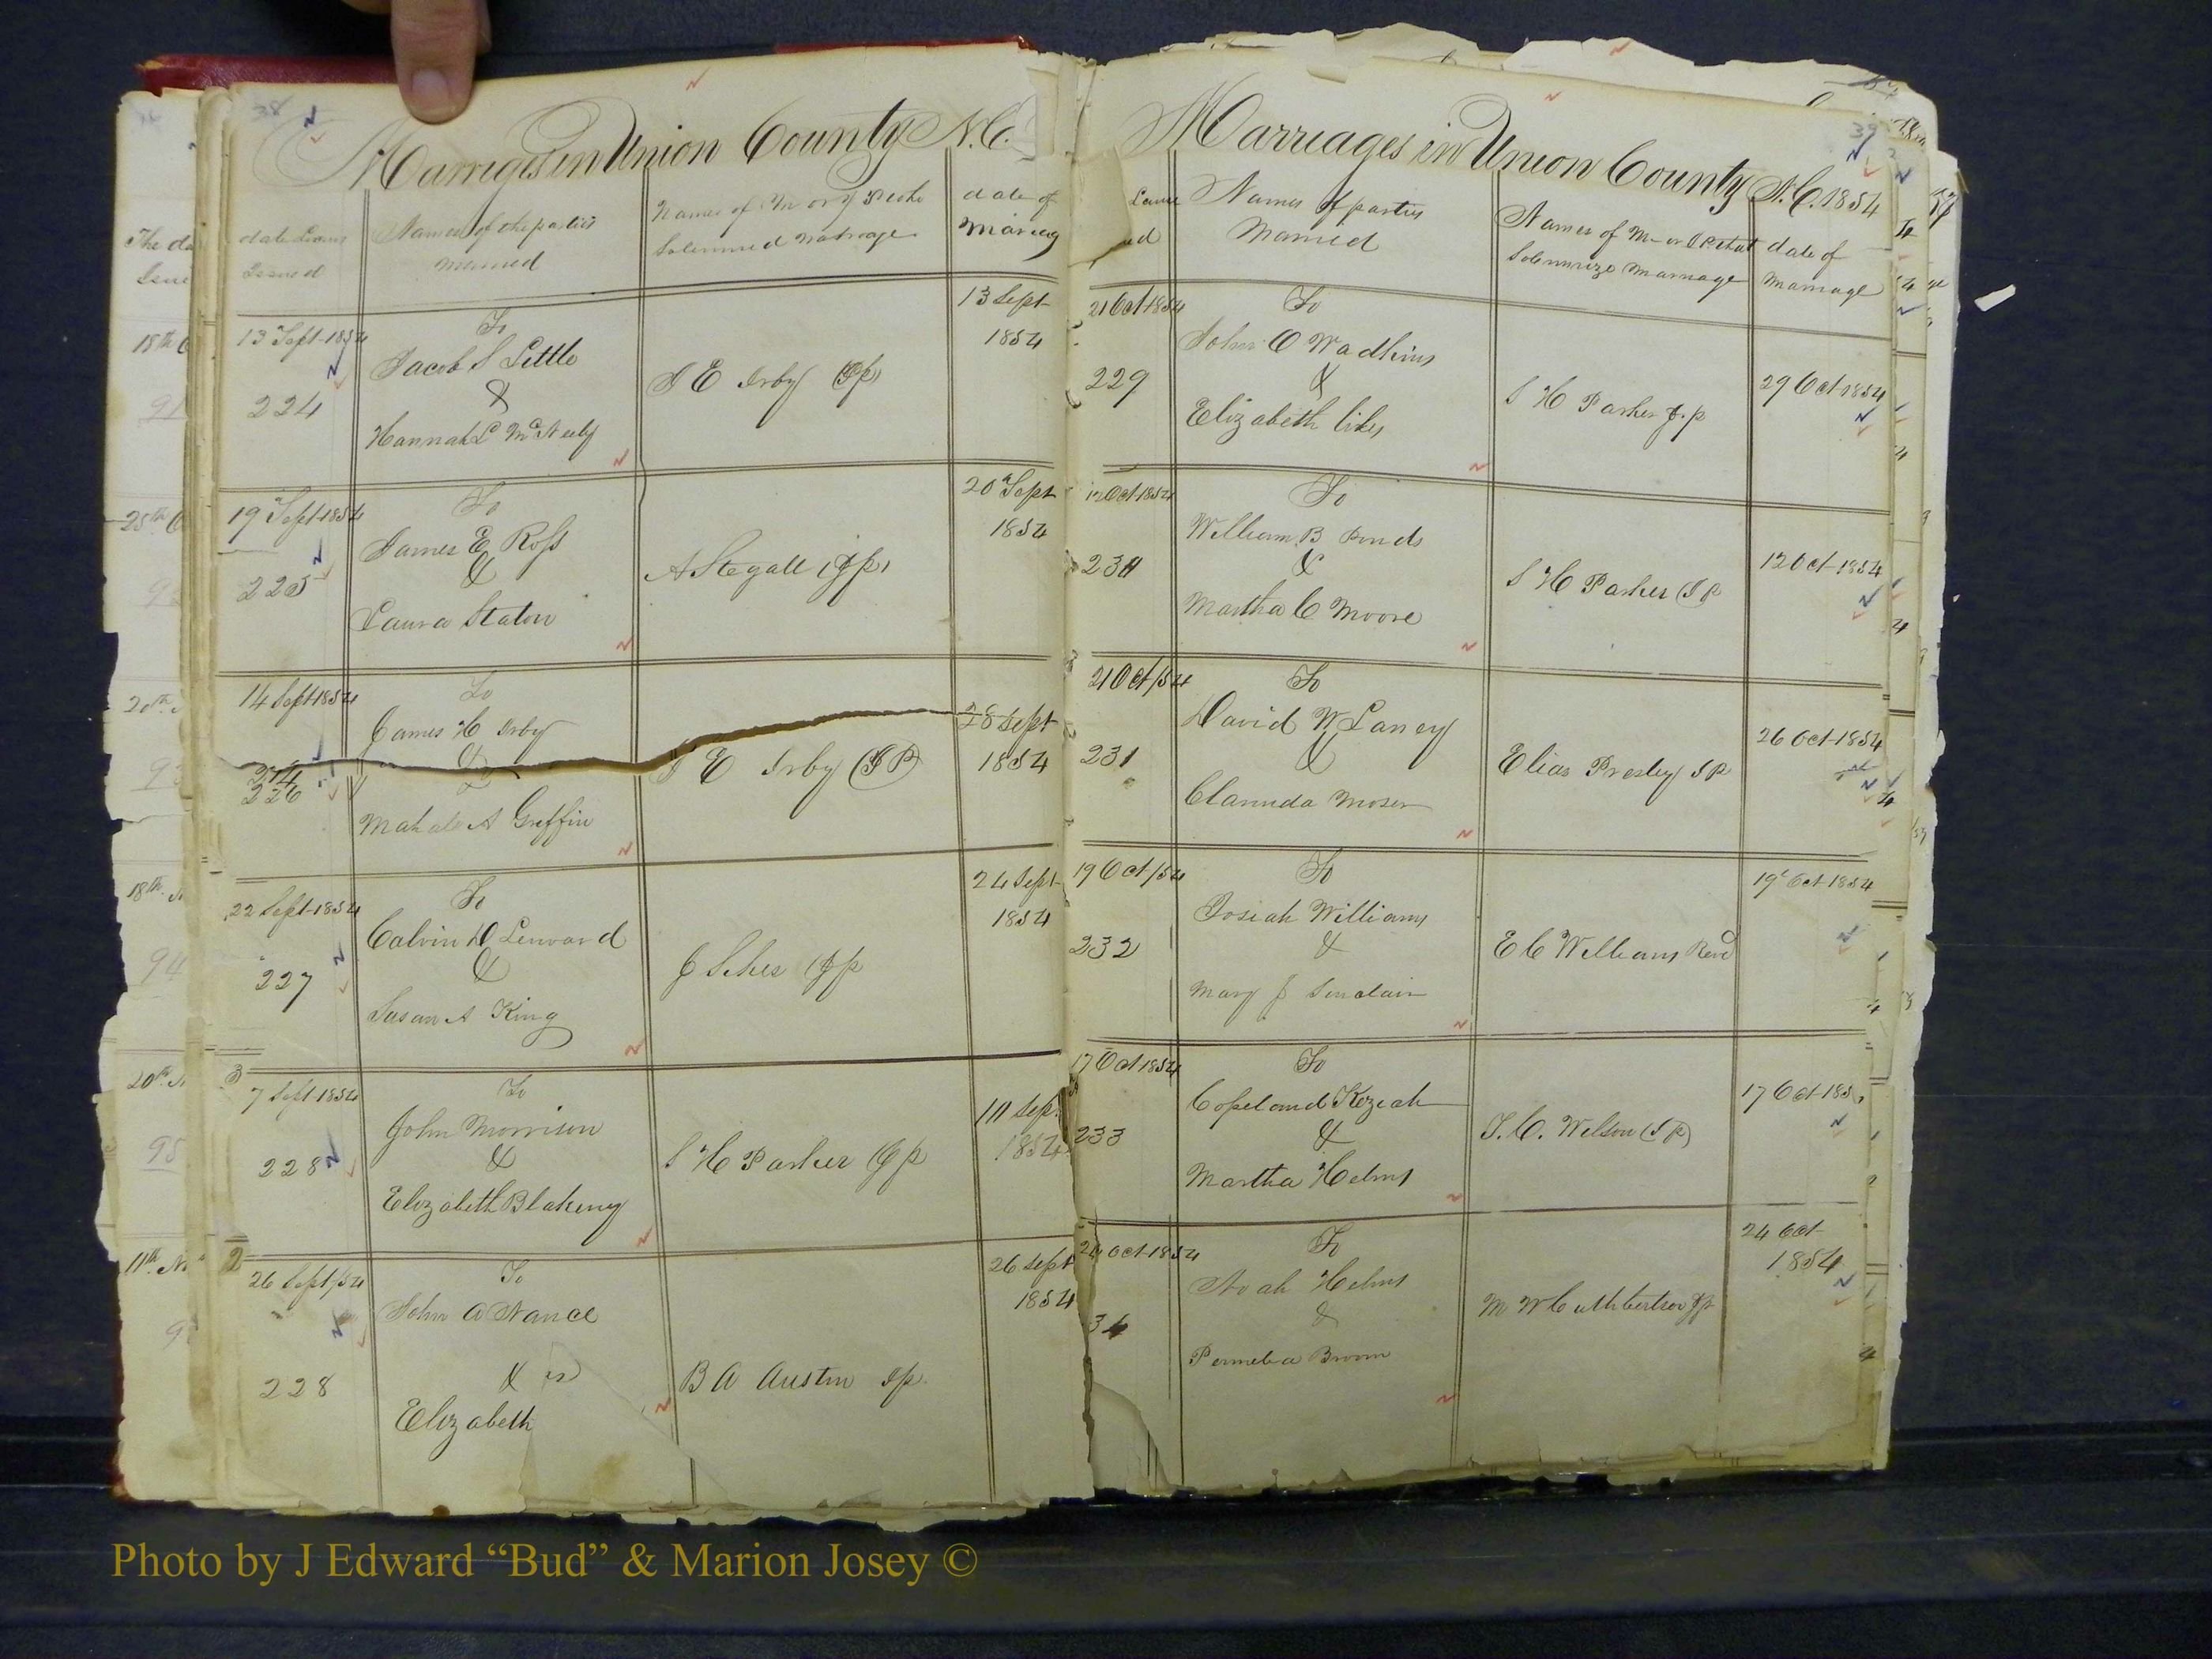 38
Marriges in Union County N.C.
date Licens
Issued
Names of the parties
married
Names of
Solemnized matrage
date of
Marriag
13 Sept 1854
224
To
Jacob S Little
&
Hannah L McNeely
J E Irby (Jp)
13 Sept
1854
19 Sept 1854
225
To
James E Ross
&
Laura Staton
A Stegall (Jp)
20 Sept
1854
14 Sept 1854
226
To
James H Irby
&
Mahala A Griffin
J E Irby (JP)
28 Sept
1854
22 Sept 1854
227
To
Calvin D Lenvard
&
Susan A King
J Sikes (Jp
24 Sept
1854
7 Sept 1854
228
To
John Morrison
&
Elizabeth Blakeny
S H Parker (Jp
10 Sep
1854
26 Sept/54
228
To
John A Nance
&
Elizabeth
B A Austin Jp.
26 Sept
1854
39
Marriages in Union County N.C. 1854
Names of parties
Married
Names of M- or
Solemnize marriage
date of
marriage
21 Oct 1854
229
To
John C Wadkins
&
Elizabeth Likes
S H Parker J.p
29 Oct 1854
12 Oct 1854
230
To
William B Ponds
&
Martha C Moore
S H Parker (J P
12 Oct 1854
21 Oct/54
231
To
David W Laney
&
Clarinda Moser
Elias Presley J P
26 Oct 1854
19 Oct/54
232
To
Josiah Williams
&
Mary J Sinclair
E C Williams Revd
19 Oct 1854
17 Oct 1854
233
To
Copeland Keziah
&
Martha Helms
T. C. Wilson (J P)
17 Oct 185
24 Oct 1854
34
To
Noah Helms
&
Permelia Broom
M W Cuthbertson Jp
24 Oct
1854
Photo by J Edward “Bud” & Marion Josey ©